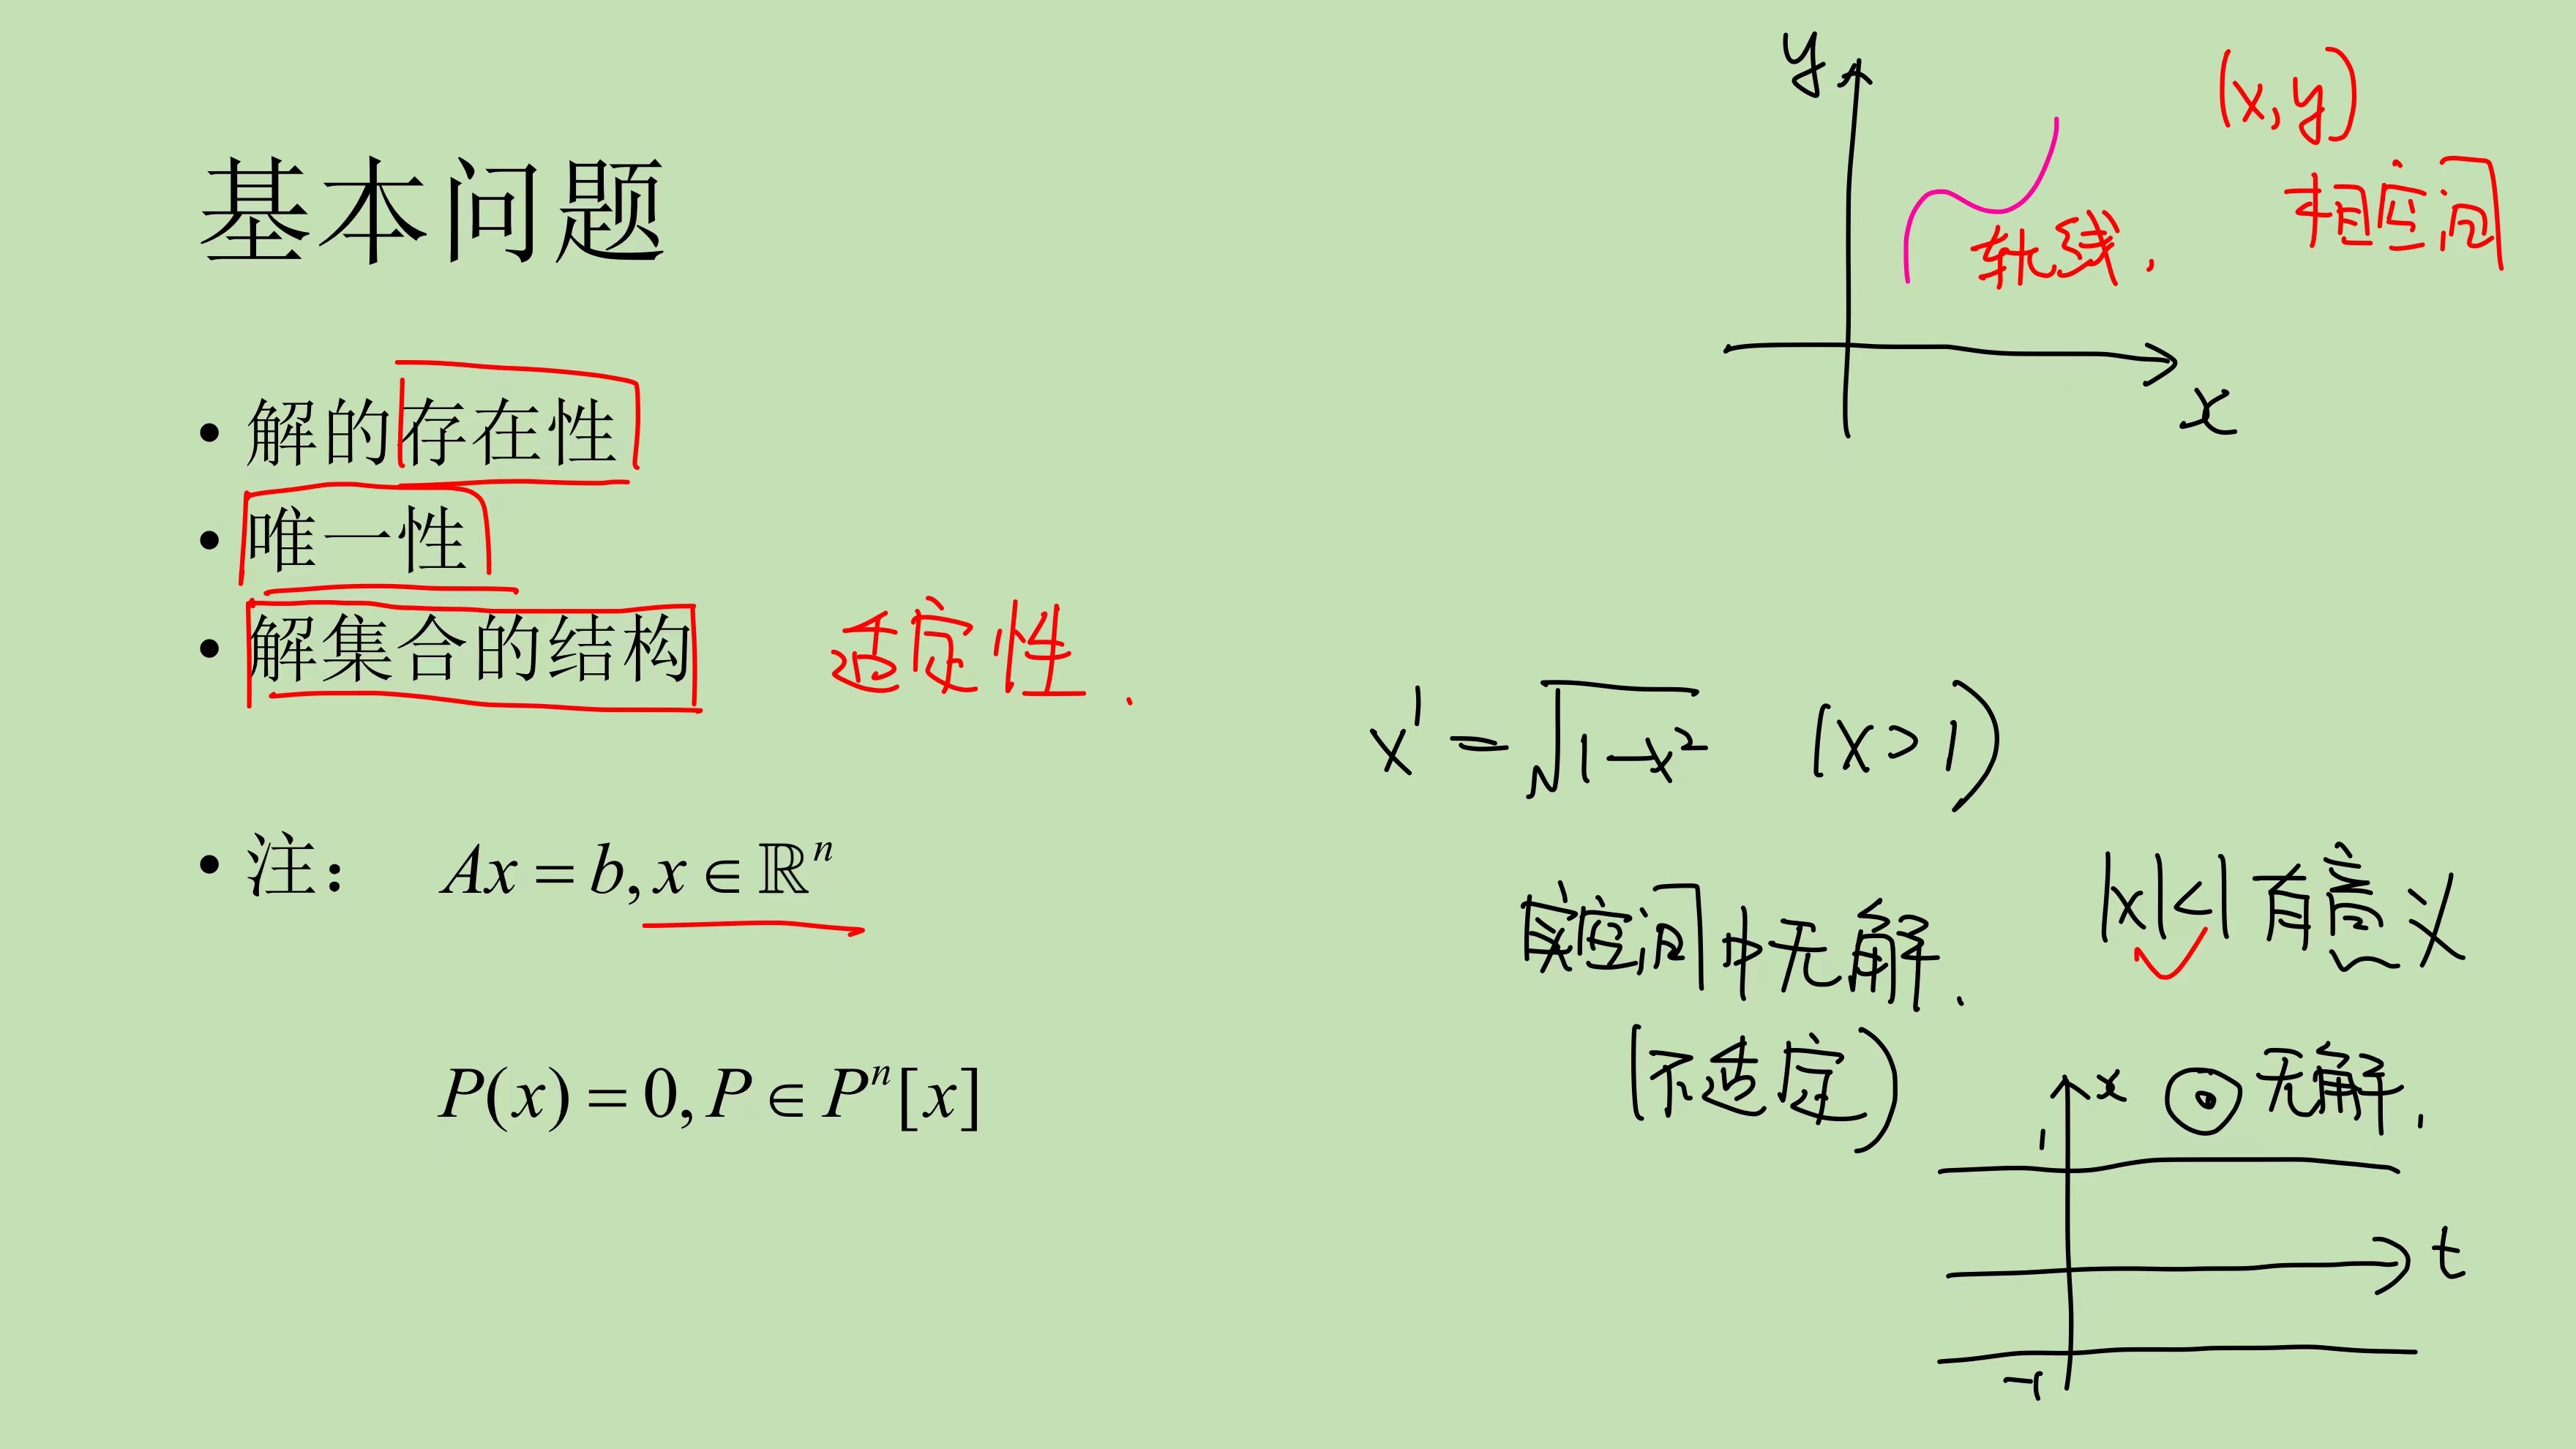 基本问题
• 解的存在性
• 唯一性
• 解集合的结构
适定性.
• 注： Ax = b, x ∈ ℝⁿ
P(x) = 0, P ∈ Pⁿ[x]
y
(x,y)
相空间
轨线.
x
x' = √1-x² (x>1)
实空间中无解.
(不适定)
|x|<1有意义
x
无解.
1
t
-1